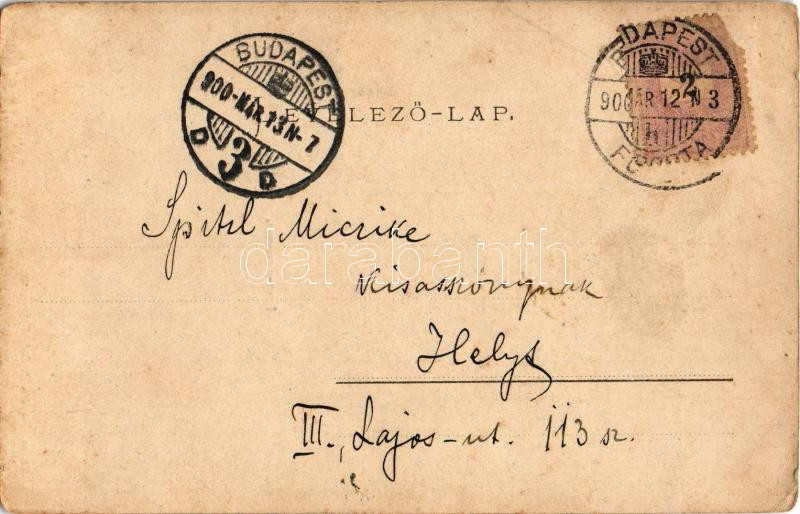 BUDAPEST
900-MÁR.13N-7
D 3 D
LEVELEZŐ-LAP.
BUDAPEST
2
900 MÁR 12-N 3
h
FŐPOSTA
Spitzl Miczike
kisasszonynak
darabanth
Helyt
III., Lajos-ut. 113 sz.